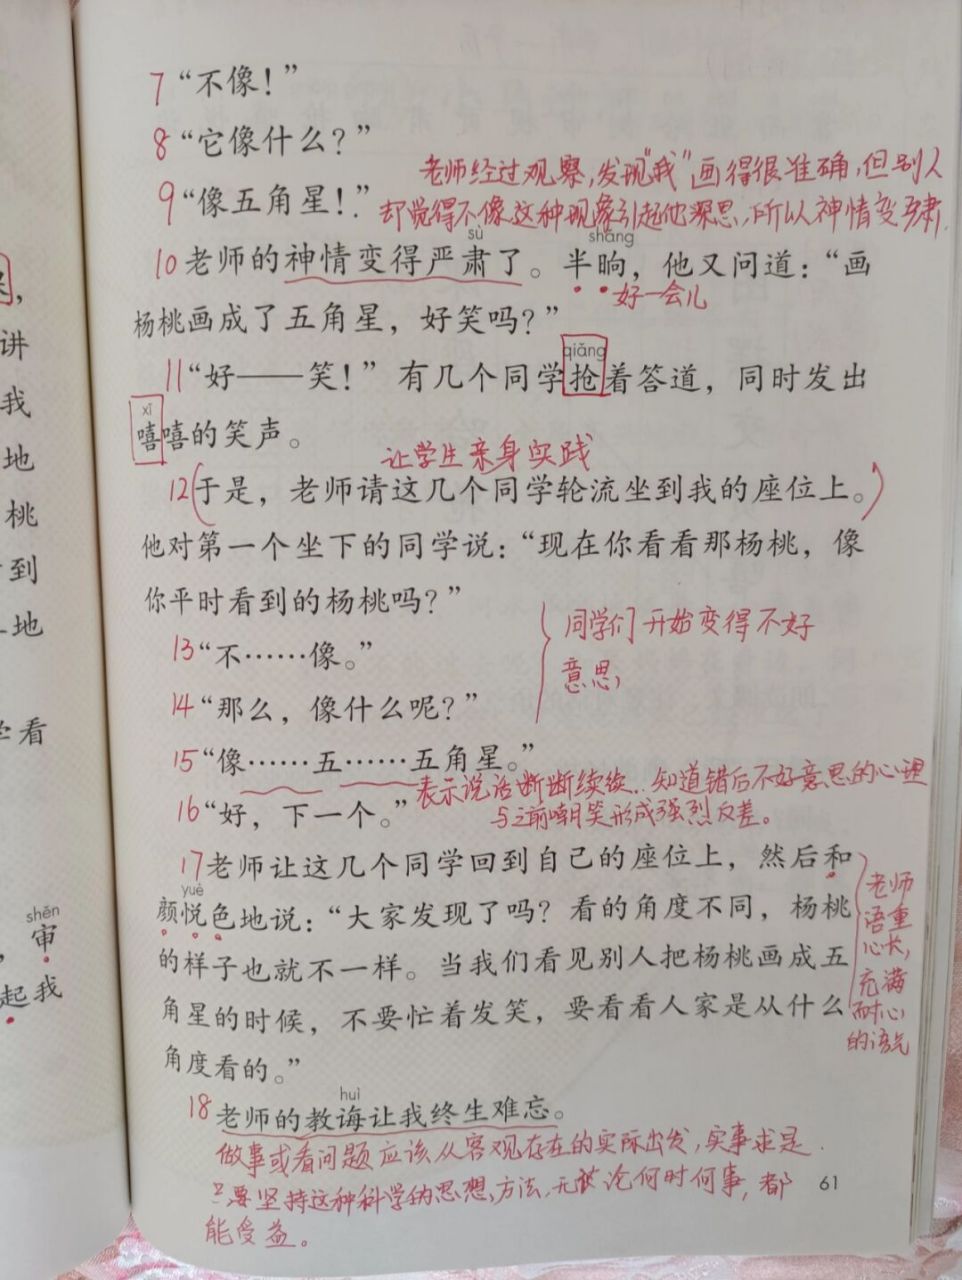 7“不像！”
8“它像什么？”
老师经过观察，发现“我”画得很准确，但别人
9“像五角星！”
却觉得不像，这种现象引起他深思，所以神情变严肃。
sù
shǎng
10老师的神情变得严肃了。半晌，他又问道：“画
好一会儿
杨桃画成了五角星，好笑吗？”
qiǎng
11“好——笑！”有几个同学抢着答道，同时发出
xī
嘻嘻的笑声。
让学生亲身实践
12于是，老师请这几个同学轮流坐到我的座位上。
他对第一个坐下的同学说：“现在你看看那杨桃，像
你平时看到的杨桃吗？”
同学们开始变得不好
意思，
13“不……像。”
14“那么，像什么呢？”
15“像……五……五角星。”
表示说话断断续续，知道错后不好意思的心理
16“好，下一个。”
与之前嘲笑形成强烈反差。
17老师让这几个同学回到自己的座位上，然后和
yuè
颜悦色地说：“大家发现了吗？看的角度不同，杨桃
的样子也就不一样。当我们看见别人把杨桃画成五
角星的时候，不要忙着发笑，要看看人家是从什么
角度看的。”
老师
语重
心长，
充满
耐心
的语气
huì
18老师的教诲让我终生难忘。
做事或看问题应该从客观存在的实际出发，实事求是
只要坚持这种科学的思想，方法，无论何时何事，都
能受益。
61
讲
我
地
桃
到
地
看
shěn
审
起我